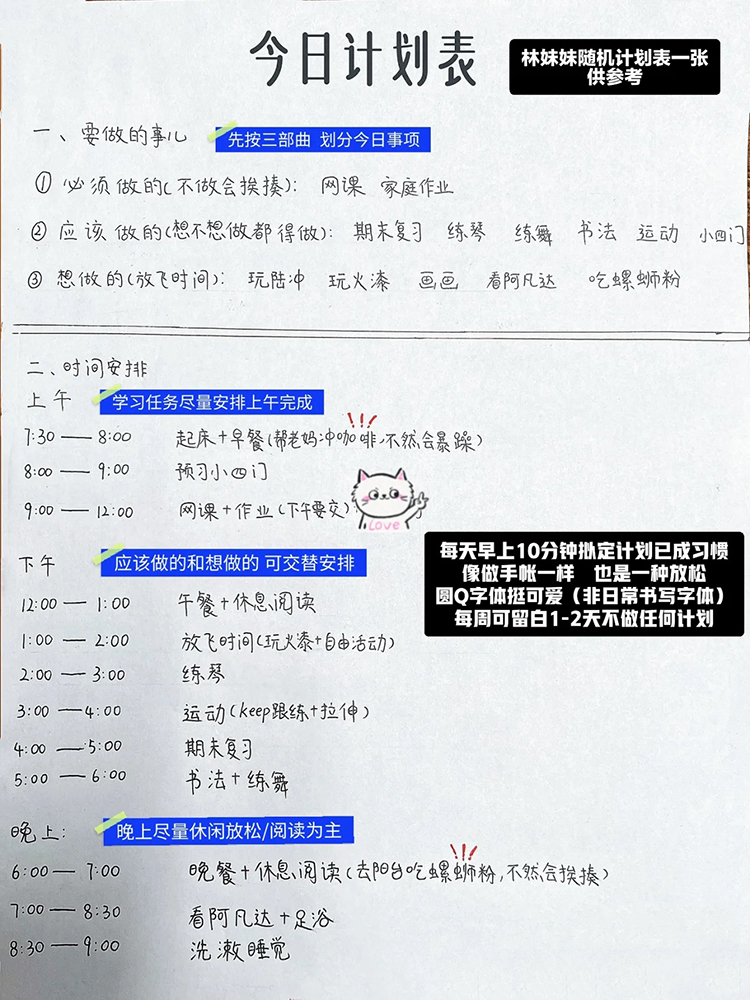 今日计划表
林妹妹随机计划表一张
供参考
一、要做的事儿
先按三部曲 划分今日事项
① 必须做的(不做会挨揍): 网课 家庭作业
② 应该做的(想不想做都得做): 期末复习 练琴 练舞 书法 运动 小四门
③ 想做的(放飞时间): 玩陆冲 玩火漆 画画 看阿凡达 吃螺蛳粉
二、时间安排
上午
学习任务尽量安排上午完成
7:30 — 8:00 起床+早餐(帮老妈冲咖啡,不然会暴躁)
8:00 — 9:00 预习小四门
9:00 — 12:00 网课+作业(下午要交)
Love
下午
应该做的和想做的 可交替安排
每天早上10分钟拟定计划已成习惯
像做手帐一样 也是一种放松
圆Q字体挺可爱（非日常书写字体）
每周可留白1-2天不做任何计划
12:00 — 1:00 午餐+休息阅读
1:00 — 2:00 放飞时间(玩火漆+自由活动)
2:00 — 3:00 练琴
3:00 — 4:00 运动(keep跟练+拉伸)
4:00 — 5:00 期末复习
5:00 — 6:00 书法+练舞
晚上:
晚上尽量休闲放松/阅读为主
6:00 — 7:00 晚餐+休息阅读(去阳台吃螺蛳粉,不然会挨揍)
7:00 — 8:30 看阿凡达+足浴
8:30 — 9:00 洗漱睡觉